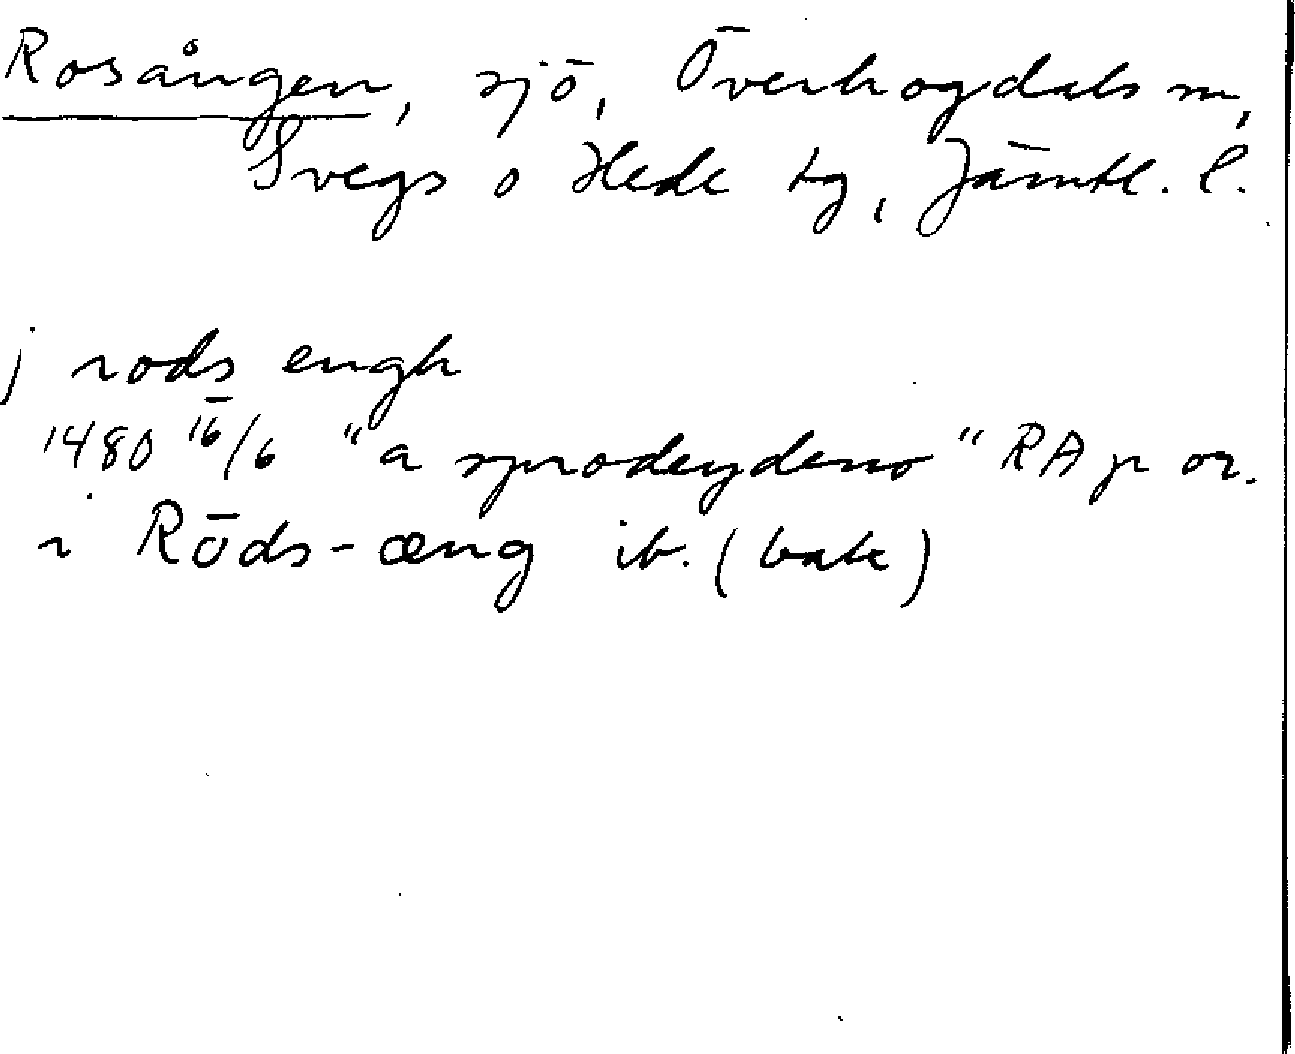 Rosången, sjö, Överhogdals sn,
Svegs o Hede tg, Jämtl. l.
j rods engh
1480 16/6 "a" RA p or.
i Röds-æng ib. (bak)